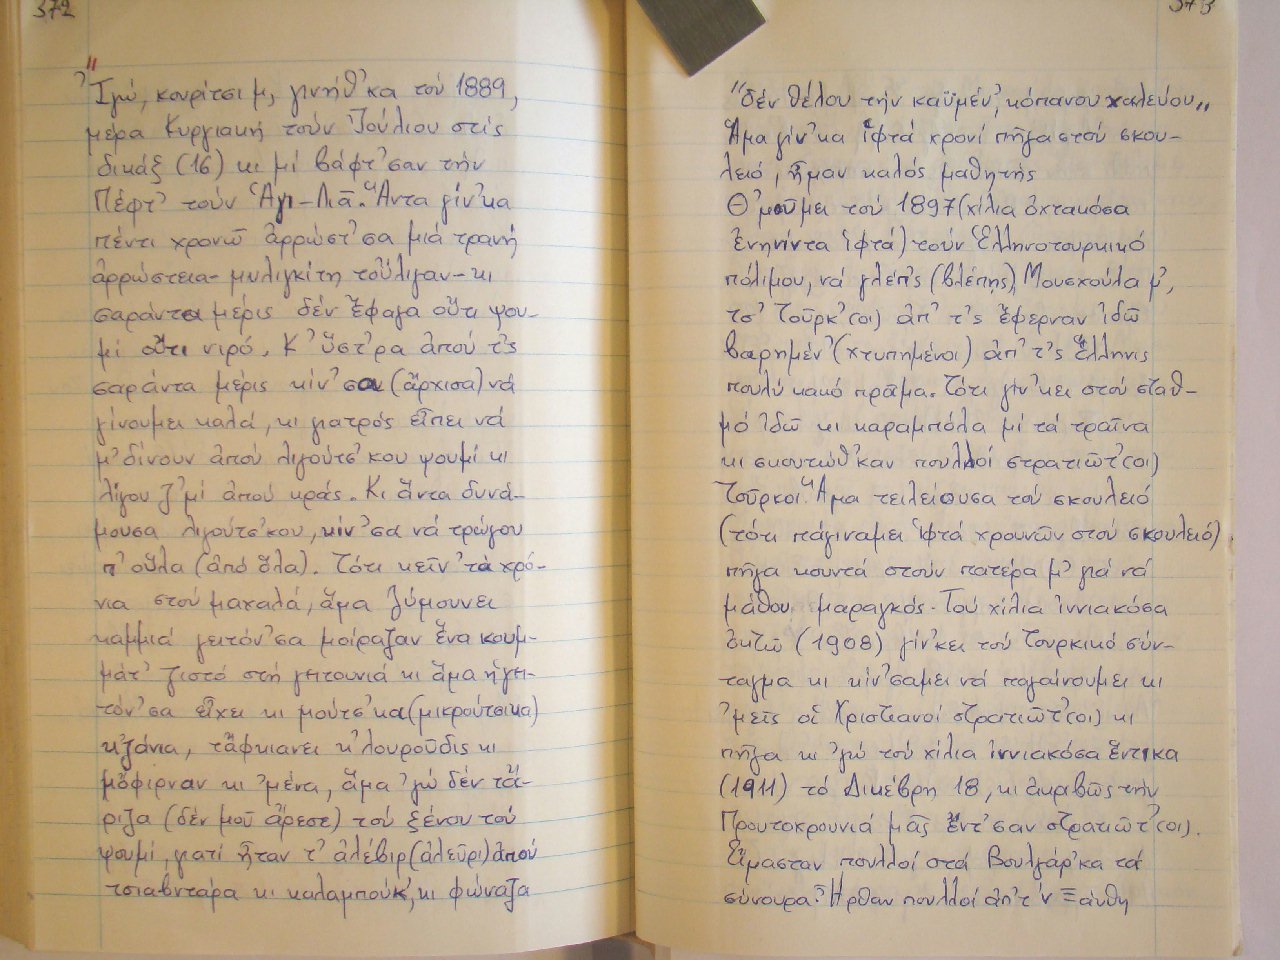 372
"
Ἰγώ, κουρίτσι μ, γινήθ'κα τού 1889,
μέρα Κυργιακή τούν Ἰούλιου στίς
δικάξ (16) κι μί βάφτ'σαν τήν
Πέφτ' τούν Ἁγι-Λιᾶ. Ἅντα γίν'κα
πέντι χρονῶ ἀρρώστ'σα μιά τρανή
ἀρρώστεια - μιλιγκίτη τοὔλιγαν - κι
σαράντα μέρις δέν ἔφαγα οὔτι ψου-
μί οὔτι νιρό. Κ' ὕστ'ρα ἀπού τ'ς
σαράντα μέρις κίν'σα (ἄρχισα) νά
γίνουμει καλά, κι γιατρός εἶπει νά
μ' δίνουν ἀπού λιγούτσ'κου ψουμί κι
λίγου ζ'μί ἀπού κρás. Κι ἅντα δυνά-
μουσα λιγούτσ'κου, κίν'σα νά τρώγου
π' οὕλα (ἀπό ὅλα). Τότι κεῖν' τά χρό-
νια στού μαχαλά, ἅμα ζύμουνει
καμμιά γειτόν'σα μοίραζαν ἕνα κουμ-
μάτ' ζιστό στή γειτουνιά κι ἅμα ἡ γει-
τόν'σα εἶχει κι μούτσ'κα (μικρούτσικα)
κ'ζάνια, τἄφκιανει κ'λουροῦδις κι
μὄφιρναν κι 'μένα, ἅμα 'γώ δέν τἄ-
ριζα (δέν μοῦ ἄρεσε) τού ξένου τού
ψουμί, γιατί ἦταν τ' ἀλέβιρ (ἀλεῦρι) ἀπού
τσιαβντάρα κι καλαμπούκ', κι φώναζα
373
"δέν θέλου τήν καϋμέν', κόπανου χαλεύου"
Ἅμα γίν'κα ἱφτά χρονί πῆγα στού σκου-
λειό, ἦμαν καλός μαθητής
Θ'μοῦμει τού 1897 (χίλια ὀχτακόσα
ἐνηνήντα ἱφτά) τούν Ἑλληνοτουρκικό
πόλιμου, νά γλέπ'ς (βλέπης) Μουσχούλα μ',
τσ' Τοῦρκ'(οι) ἀπ' τ'ς ἔφερναν ἰδῶ
βαρημέν' (χτυπημένοι) ἀπ' τ'ς Ἕλληνις
πουλύ κακό πρᾶμα. Τότι γίν'κει στού σταθ-
μό ἰδῶ κι καραμπόλα μί τά τραῖνα
κι σκουτώθ'καν πουλλοί στρατιῶτ'(οι)
Τοῦρκοι. Ἅμα τειλείουσα τού σκουλειό
(τότι πάγιναμει ἱφτά χρουνῶν στού σκουλειό)
πῆγα κουντά στούν πατέρα μ' γιά νά
μάθου μαραγκός. Τού χίλια ἰννιακόσα
ὀκτώ (1908) γίν'κει τού Τουρκικό σύν-
ταγμα κι κίν'σαμει νά παγαίνουμει κι
'μεῖς οἱ Χριστιανοί στρατιῶτ'(οι) κι
πῆγα κι 'γώ τού χίλια ἰννιακόσα ἕντικα
(1911) τό Δικέβρη 18, κι ἀκριβῶς τήν
Πρωτοκρουνιά μᾶς ἔντ'σαν στρατιῶτ'(οι).
Εἴμασταν πουλλοί στά Βουλγάρ'κα τά
σύνουρα. Ἦρθαν πουλλοί ἀπ' τ'ν Ξάνθη